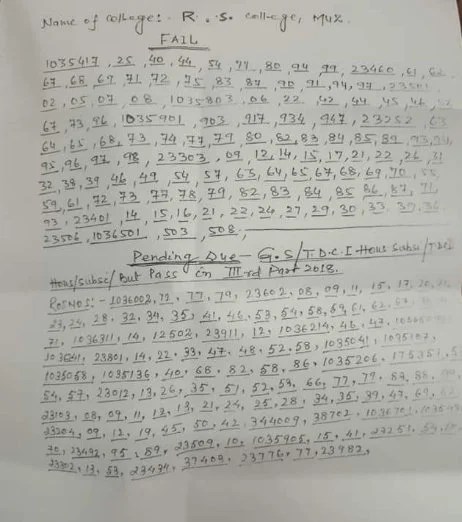 Name of collage:- R.S. college, Muz.
FAIL
1035417, 25, 40, 44, 54, 77, 80, 94, 99, 23460, 61, 62
67, 68, 69, 71, 72, 75, 83, 87, 90, 91, 94, 97, 23501
02, 05, 07, 08, 1035803, 06, 22, 42, 44, 45, 46, 52
67, 73, 96, 1035901, 903, 917, 934, 947, 23252, 63
64, 65, 68, 73, 74, 77, 79, 80, 82, 83, 84, 85, 89, 93, 94
95, 96, 97, 98, 23303, 09, 12, 14, 15, 17, 21, 22, 26, 31
32, 38, 39, 46, 49, 54, 57, 63, 64, 65, 67, 68, 69, 70, 55,
59, 61, 72, 73, 77, 78, 79, 82, 83, 84, 85, 86, 87, 71,
93, 23401, 14, 15, 16, 21, 22, 24, 27, 29, 30, 33
23506, 1036501, 503, 508,
Pending Due - G.S/T.D.C.I-Hons Subsi/T.D.C.I
Hons/Subsi/But Pass in IIIrd Part 2018.
Roll NO1:- 1036002, 12, 77, 79, 23602, 08, 09, 11, 15, 17, 20
23, 24, 28, 32, 34, 35, 41, 46, 53, 54, 58, 59, 61, 62
71, 1036311, 14, 12502, 23911, 12, 1036214, 46, 47
1036241, 23801, 14, 22, 33, 47, 48, 52, 58, 1035041, 1035107,
1035058, 1035136, 40, 68, 82, 58, 86, 1035206
54, 57, 23012, 13, 26, 35, 51, 52, 53, 66, 77, 79, 83, 88
23103, 08, 09, 11, 12, 13, 21, 24, 25, 28, 34, 35, 39, 43, 69
23204, 09, 12, 19, 45, 50, 42, 344009, 38702, 1036701
70, 23492, 95, 89, 23509, 10, 1035905, 15, 41, 23251, 53
23302, 13, 53, 23434, 37409, 23776, 77, 23982,